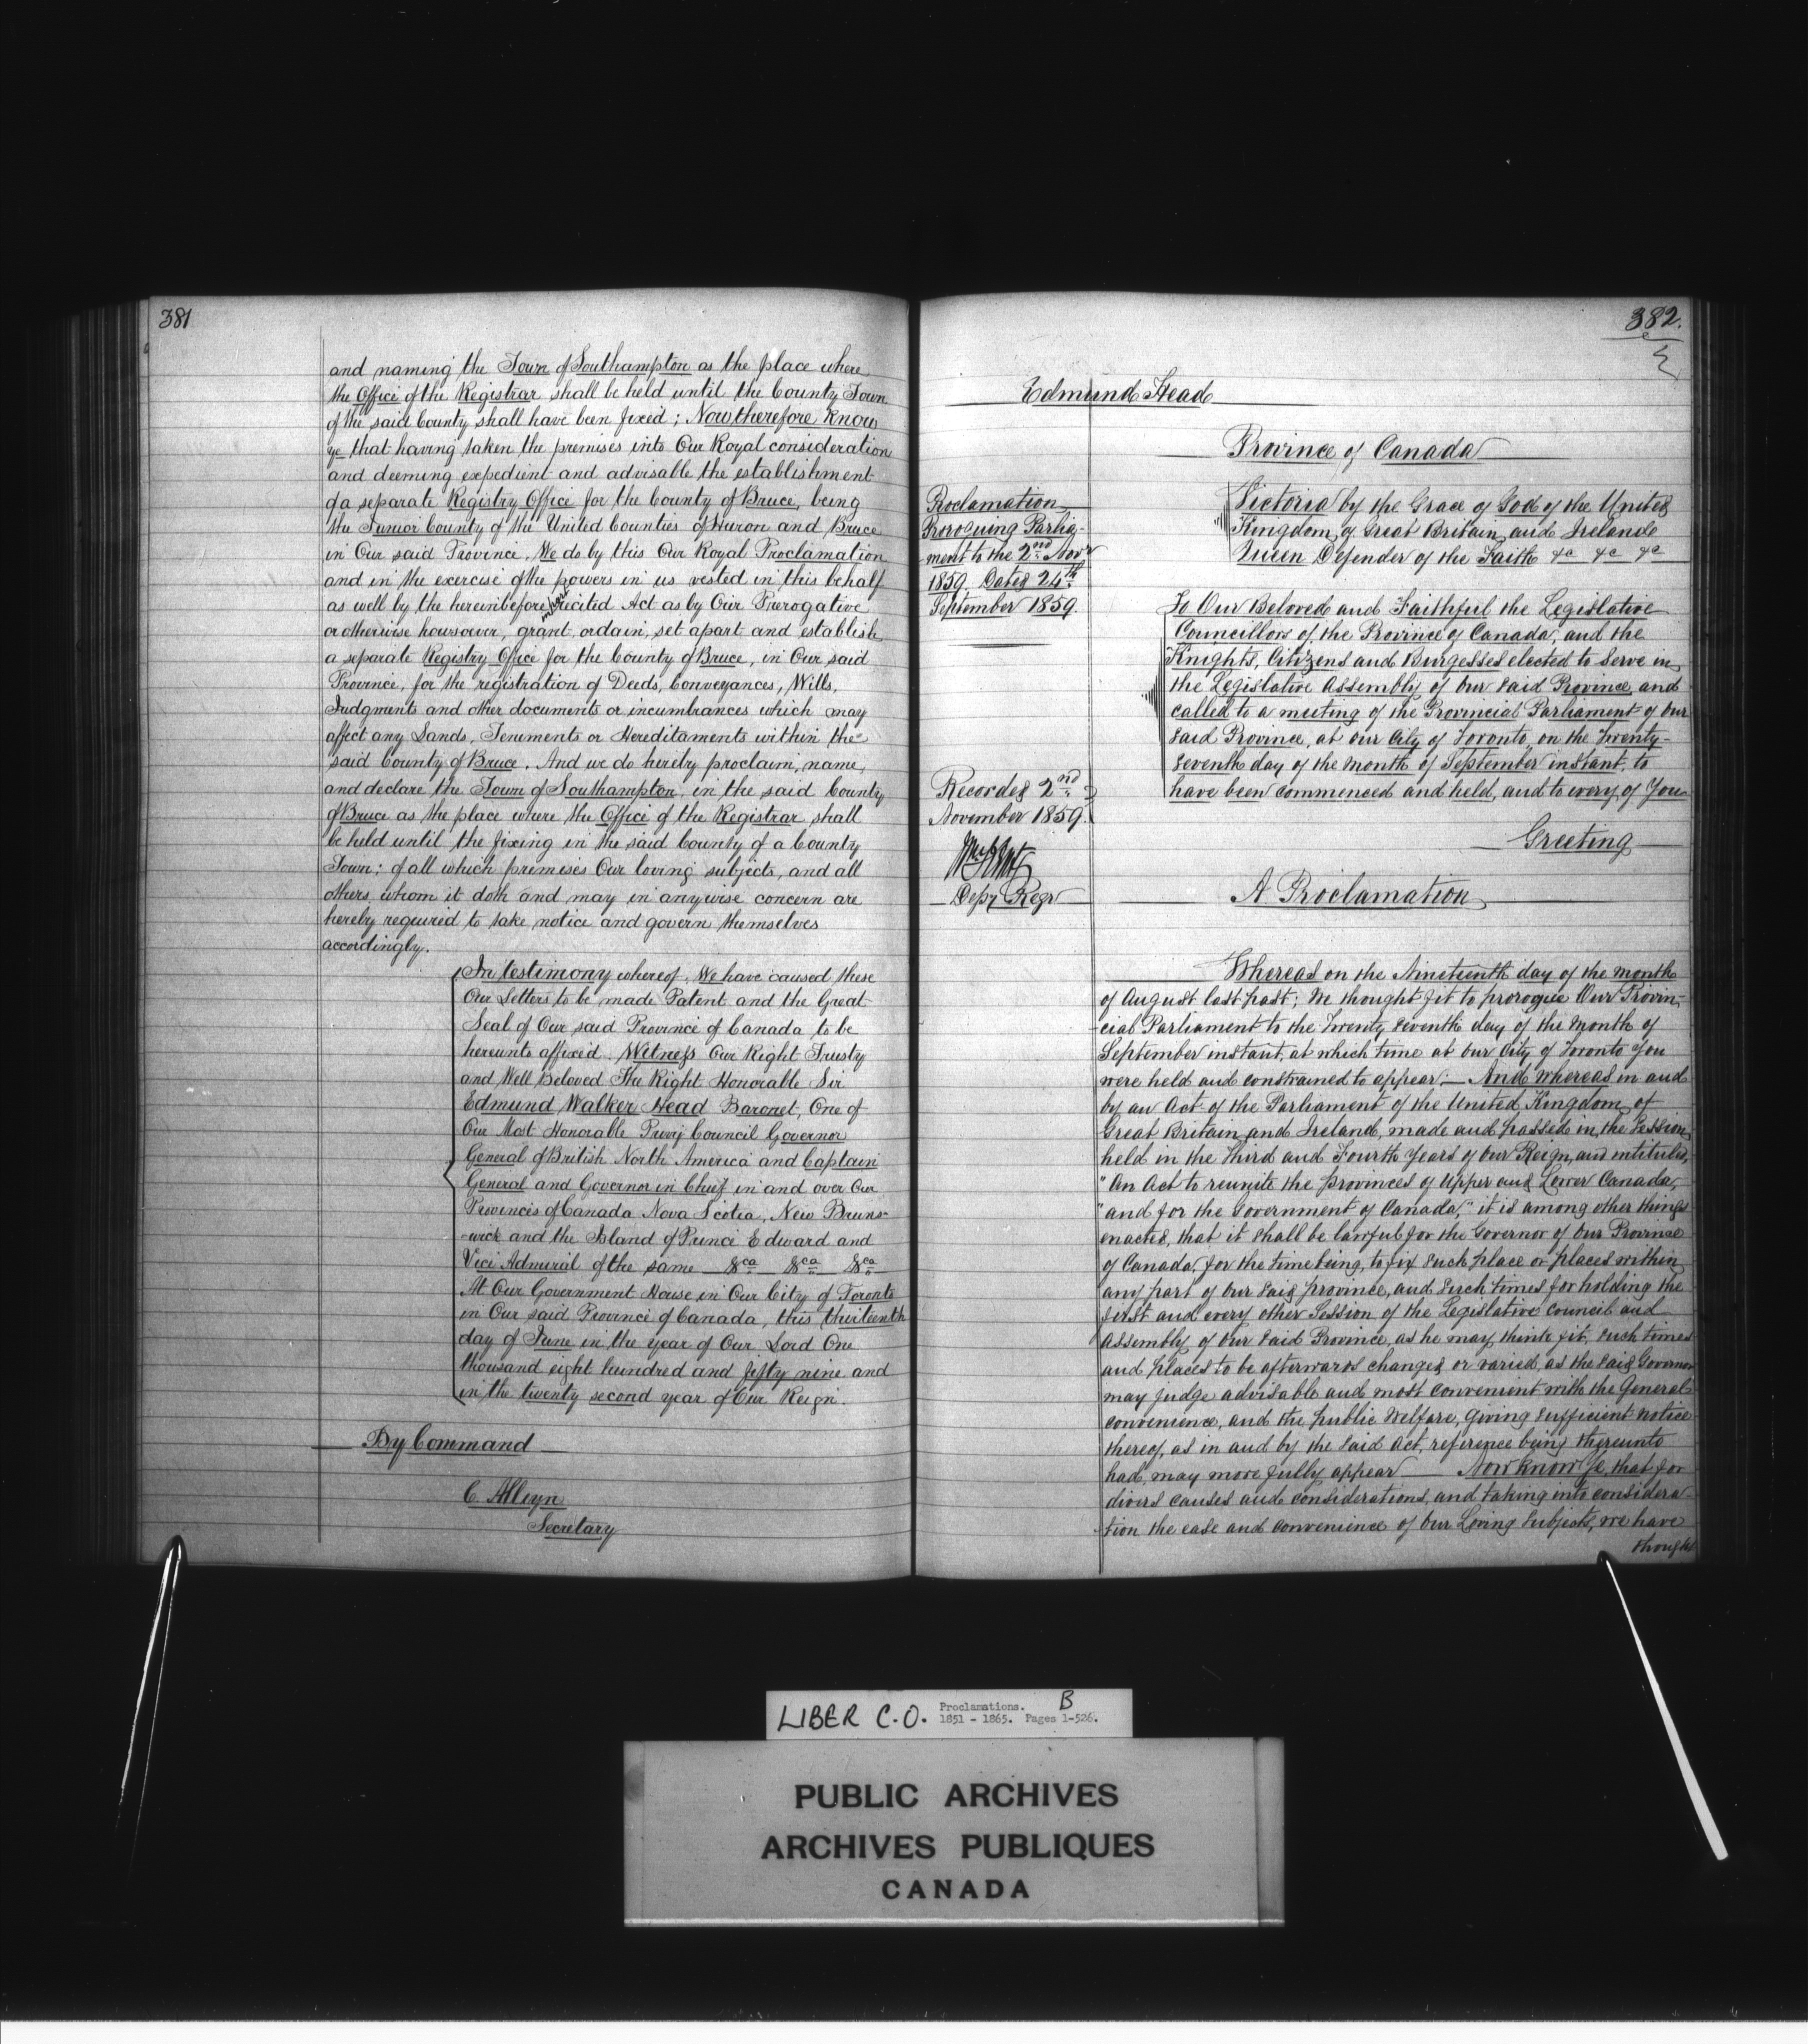 381
and naming the Town of Southampton as the place where
the Office of the Registrar shall be held until the County Town
of the said County shall have been fixed; Now therefore Know
ye that having taken the premises into Our Royal consideration
and deeming expedient and advisable the establishment
of a separate Registry Office for the County of Bruce, being
the Junior County of the United Counties of Huron and Bruce
in Our said Province. We do by this Our Royal Proclamation
and in the exercise of the powers in us vested in this behalf
as well by the hereinbefore recited Act as by Our Prerogative
or otherwise howsoever, grant, ordain, set apart and establish
a separate Registry Office for the County of Bruce, in Our said
Province, for the registration of Deeds, Conveyances, Wills,
Judgments and other documents or incumbrances which may
affect any Lands, Tenements or Hereditaments within the
said County of Bruce. And we do hereby proclaim, name,
and declare the Town of Southampton, in the said County
of Bruce as the place where the Office of the Registrar shall
be held until the fixing in the said County of a County
Town; of all which premises Our loving subjects, and all
others whom it doth and may in anywise concern are
hereby required to take notice and govern themselves
accordingly.
In testimony whereof, We have caused these
Our Letters to be made Patent and the Great
Seal of Our said Province of Canada to be
hereunto affixed. Witness Our Right Trusty
and Well Beloved The Right Honorable Sir
Edmund Walker Head Baronet, One of
Our Most Honorable Privy Council Governor
General of British North America and Captain
General and Governor in Chief in and over Our
Provinces of Canada Nova Scotia, New Bruns-
-wick and the Island of Prince Edward and
Vice Admiral of the same &ca &ca &ca
At Our Government House in Our City of Toronto
in Our said Province of Canada, this thirteenth
day of June in the year of Our Lord One
thousand eight hundred and fifty nine and
in the twenty second year of Our Reign.
By Command
C. Alleyn
Secretary
382.
Edmund Head
Province of Canada
Proclamation
Proroguing Parlia-
ment to the 2nd Novr
1859. Dated 24th
September 1859.
Victoria by the Grace of God of the United
Kingdom of Great Britain and Ireland
Queen Defender of the Faith &c &c &c
To Our Beloved and Faithful the Legislative
Councillors of the Province of Canada, and the
Knights, Citizens and Burgesses elected to serve in
the Legislative Assembly of Our said Province and
called to a meeting of the Provincial Parliament of Our
said Province, at Our City of Toronto, on the Twenty-
seventh day of the month of September instant, to
have been commenced and held, and to every of You
Greeting
Recorded 2nd
November 1859.
Depy Regr
A Proclamation
Whereas on the Nineteenth day of the month
of August last past; We thought fit to prorogue Our Provin-
cial Parliament to the Twenty seventh day of the month of
September instant, at which time at Our City of Toronto You
were held and constrained to appear; And Whereas in and
by an Act of the Parliament of the United Kingdom of
Great Britain and Ireland, made and passed in the Session
held in the Third and Fourth Years of Our Reign, and intituled,
"An Act to reunite the provinces of Upper and Lower Canada,
"and for the Government of Canada," it is among other things
enacted, that it shall be lawful for the Governor of Our Province
of Canada, for the time being, to fix such place or places within
any part of Our said province, and such times for holding the
first and every other Session of the Legislative Council and
Assembly of Our said Province, as he may think fit, such times
and places to be afterwards changed or varied as the said Governor
may judge advisable and most convenient with the General
convenience, and the public Welfare, giving sufficient notice
thereof, as in and by the said Act, reference being thereunto
had, may more fully appear Now Know Ye, that for
divers causes and considerations, and taking into considera-
tion the ease and convenience of Our Loving Subjects, we have
thought
LIBER C.O. Proclamations. B
1851 - 1865. Pages 1-526.
PUBLIC ARCHIVES
ARCHIVES PUBLIQUES
CANADA